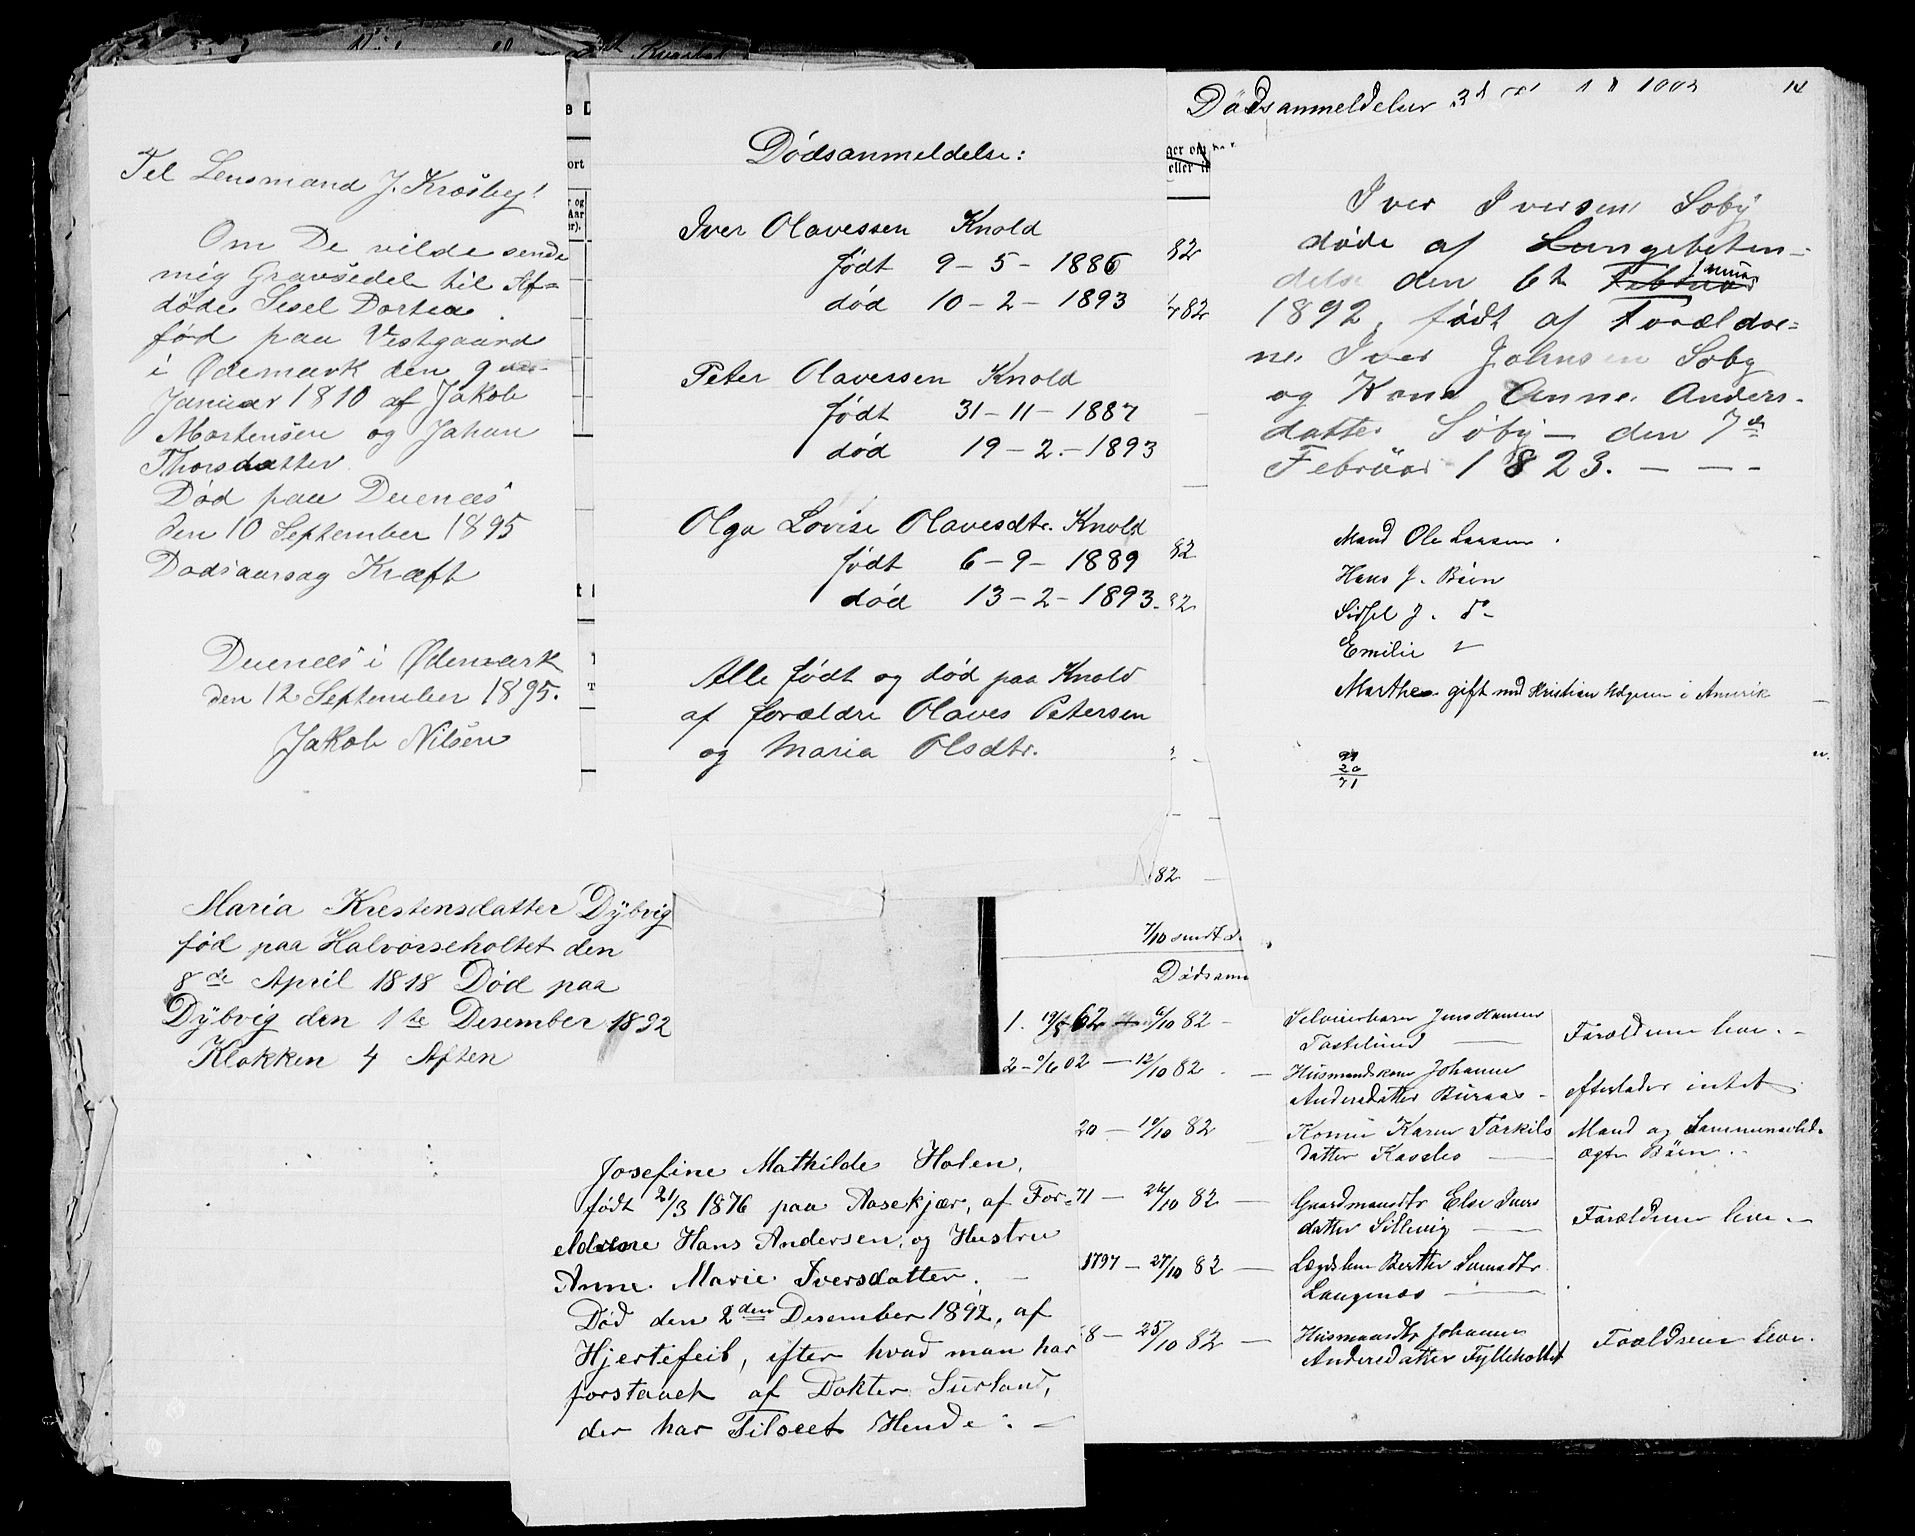 Til Lensmand J. Krosby!
Om De vilde sende
mig Gravsedel til Af=
døde Sisel Dortea
fød paa Vestgaard
i Ødemark den 9
Januar 1810 af Jakob
Mortensen og Johan
Thorsdatter
Død paa Duenæs
den 10 September 1895
Dødsaarsag Kræft
Duenæs i Ødemark
den 12 September 1895.
Jakob Nilsen
Maria Krestensdatter Dÿbvig
fød paa Halvorseholtet den
8de April 1818 Død paa
Dÿbvig den 1te Desember 1892
Klokken 4 Aften
Dødsanmeldelse:
Iver Olavessen Knold
født 9-5-1886
død 10-2-1893
Peter Olavessen Knold
født 31-11-1887
død 19-2.-1893
Olga Lovise Olavesdtr. Knold
født 6-9-1889
død 13-2-1893.
Alle født og død paa Knold
af forældre Olaves Petersen
og Maria Olsdtr.
Josefine Mathilde Holen,
født 21/3 1876 paa Aasekjær, af For=
eldrene Hans Andersen, og Hustru
Anne Marie Iversdatter.
Død den 2den Desember 1892, af
Hjertefeil, efter hvad man har
forstaaet af Dokter Surland,
der har Tilseet Hende.
Dødsanmeldelser
14
Iver Iversen Søbÿ
døde af Lungebeten-
delse den 6te Februar Januar
1892, født af Forældre=
ne Iver Johnsen Søby
og Kone Anne Anders-
datter Søbÿ - den 7de
Februar 1823. - - -
Mand Ole Larsen.
Hans J. Börn
Sidsel J. do
Emilie "
Marthea gift med Kristian i Amerik
91
20
71
82
82
82
82
82
7/10 sendt
Dødsanm
1. 19/5 62 - 6/10 82 - Jens Hansen
Tostelund - Forældrene leve. -
2 - 9/6 02 - 12/10 82 - Husmandskone Johanne
Andersdatter Buraas - efterlader intet
20 - 19/10 82 - Kone Karen Torkils
datter Kasbo - Mand og Sammenavlede
ægte Børn.
71 - 26/10 82 - Gaardmandsdtr Else Ivers
datter Sillevig - Forældrene leve -
1797 - 27/10 82 - Lægdslem Berthe
Langenæs -
8 - 25/10 82 - Husmandsdtr Johanne
Andersdatter Fylleholtet Forældrene leve.